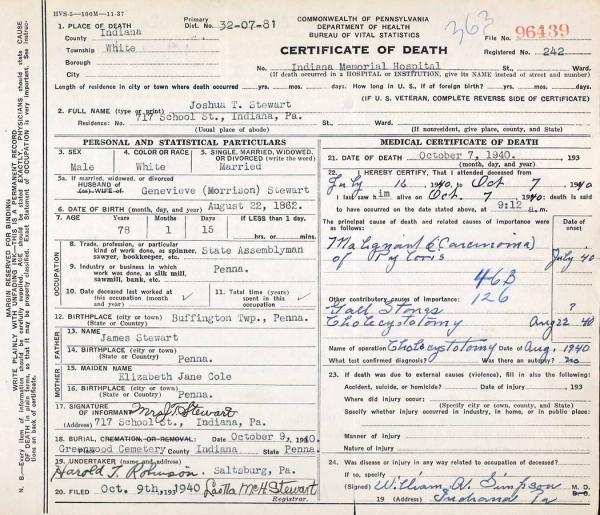 HVS-5—100M—11-37
COMMONWEALTH OF PENNSYLVANIA
DEPARTMENT OF HEALTH
BUREAU OF VITAL STATISTICS
363
File No. 96439
1. PLACE OF DEATH
County Indiana
Primary Dist. No. 32-07-81
Township White
CERTIFICATE OF DEATH
Registered No. 242
Borough
City
No. Indiana Memorial Hospital St., Ward.
(If death occurred in a HOSPITAL or INSTITUTION, give its NAME instead of street and number)
Length of residence in city or town where death occurred yrs. mos. days. How long in U. S., if of foreign birth? yrs. mos. days.
(IF U. S. VETERAN, COMPLETE REVERSE SIDE OF CERTIFICATE)
2. FULL NAME (type or print) Joshua T. Stewart
Residence: No. 717 School St., Indiana, Pa. St., Ward.
(Usual place of abode) (If nonresident, give place, county, and State)
PERSONAL AND STATISTICAL PARTICULARS
3. SEX
Male
4. COLOR OR RACE
White
5. SINGLE, MARRIED, WIDOWED, OR DIVORCED (write the word)
Married
5a. If married, widowed, or divorced
HUSBAND of
(or) WIFE of Genevieve (Morrison) Stewart
6. DATE OF BIRTH (month, day, and year) August 22, 1862.
7. AGE Years Months Days If LESS than 1 day, hrs. or min.
78 1 15
OCCUPATION
8. Trade, profession, or particular kind of work done, as spinner, sawyer, bookkeeper, etc. State Assemblyman
9. Industry or business in which work was done, as silk mill, sawmill, bank, etc. Penna.
10. Date deceased last worked at this occupation (month and year)
11. Total time (years) spent in this occupation
12. BIRTHPLACE (city or town) Buffington Twp., Penna.
(State or Country)
FATHER
13. NAME James Stewart
14. BIRTHPLACE (city or town) Penna.
(State or Country)
MOTHER
15. MAIDEN NAME Elizabeth Jane Cole
16. BIRTHPLACE (city or town) Penna.
(State or Country)
17. SIGNATURE OF INFORMANT Mrs J. T. Stewart
(Address) 717 School St., Indiana, Pa.
18. BURIAL, CREMATION, OR REMOVAL: Date October 9, 1940
Greenwood Cemetery County Indiana State Penna
19. UNDERTAKER (name and address)
Harold T. Robinson. Saltsburg, Pa.
20. FILED Oct. 9th, 193 1940 Leotta McH Stewart
Registrar.
MEDICAL CERTIFICATE OF DEATH
21. DATE OF DEATH October 7, 1940. , 193
(month, day, and year)
22. I HEREBY CERTIFY, That I attended deceased from
July 16 1940 to Oct 7 1940
I last saw him alive on Oct. 7 1940; death is said
to have occurred on the date stated above, at 9:12 a.m.
The principal cause of death and related causes of importance were as follows: Date of onset
Malignant (Carcinoma)
of Pyloris July 40
46B
126
Other contributory causes of importance:
Gall Stones ?
Cholecystotomy Aug 22 40
Name of operation Cholecystotomy Date of Aug. 1940
What test confirmed diagnosis? Was there an autopsy? no
23. If death was due to external causes (violence), fill in also the following:
Accident, suicide, or homicide? Date of injury , 193
Where did injury occur:
(Specify city or town, county, and State)
Specify whether injury occurred in industry, in home, or in public place:
Manner of injury
Nature of injury
24. Was disease or injury in any way related to occupation of deceased?
If so, specify
(Signed) William A. Simpson M. D.
19 (Address) Indiana Pa
MARGIN RESERVED FOR BINDING
WRITE PLAINLY WITH UNFADING INK—THIS IS A PERMANENT RECORD